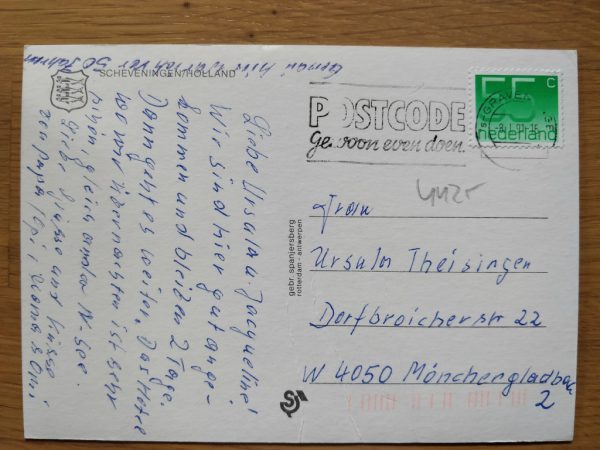 Genau hier war ich vor 50 Jahren
SCHEVENINGEN/HOLLAND
Liebe Ursula u. Jacqueline!
Wir sind hier gut ange-
kommen und bleiben 2 Tage.
Dann geht es weiter. Das Hotel
wo wir übernachten ist sehr
schön gleich an der N-See.
Liebe Grüsse und Küsse
von Papa, Opi, Leona & Omi
gebr. spanjersberg
rotterdam - antwerpen
POSTCODE
Gewoon even doen.
'S-GRAVEN
55 c
nederland
Frau
Ursula Theisingen
Dorfbroicherstr 22
W 4050 Mönchengladbach
2